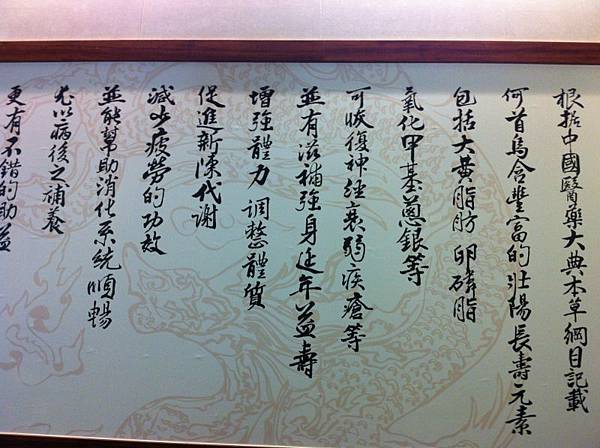 根据中國醫藥大典本草綱目記載
何首烏含豐富的壯陽長壽元素
包括大黃脂肪 卵磷脂
氧化甲基蒽銀等
可恢復神經衰弱疾瘡等
並有滋補強身延年益壽
增強體力 調整體質
促進新陳代謝
減少疲勞的功效
並能幫助消化系統順暢
尤以病後之補養
更有不錯的助益